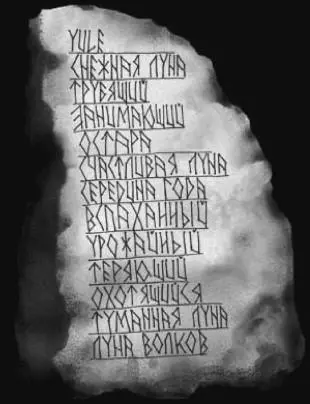 YULE
СНЕЖНАЯ ЛУНА
ТРУБЯЩИЙ
ЗАНИМАЮЩИЙ
ОСТАРА
СЧАСТЛИВАЯ ЛУНА
СЕРЕДИНА ГОДА
ВСПАХАННЫЙ
УРОЖАЙНЫЙ
ТЕРЯЮЩИЙ
ОХОТЯЩИЙСЯ
ТУМАННАЯ ЛУНА
ЛУНА ВОЛКОВ